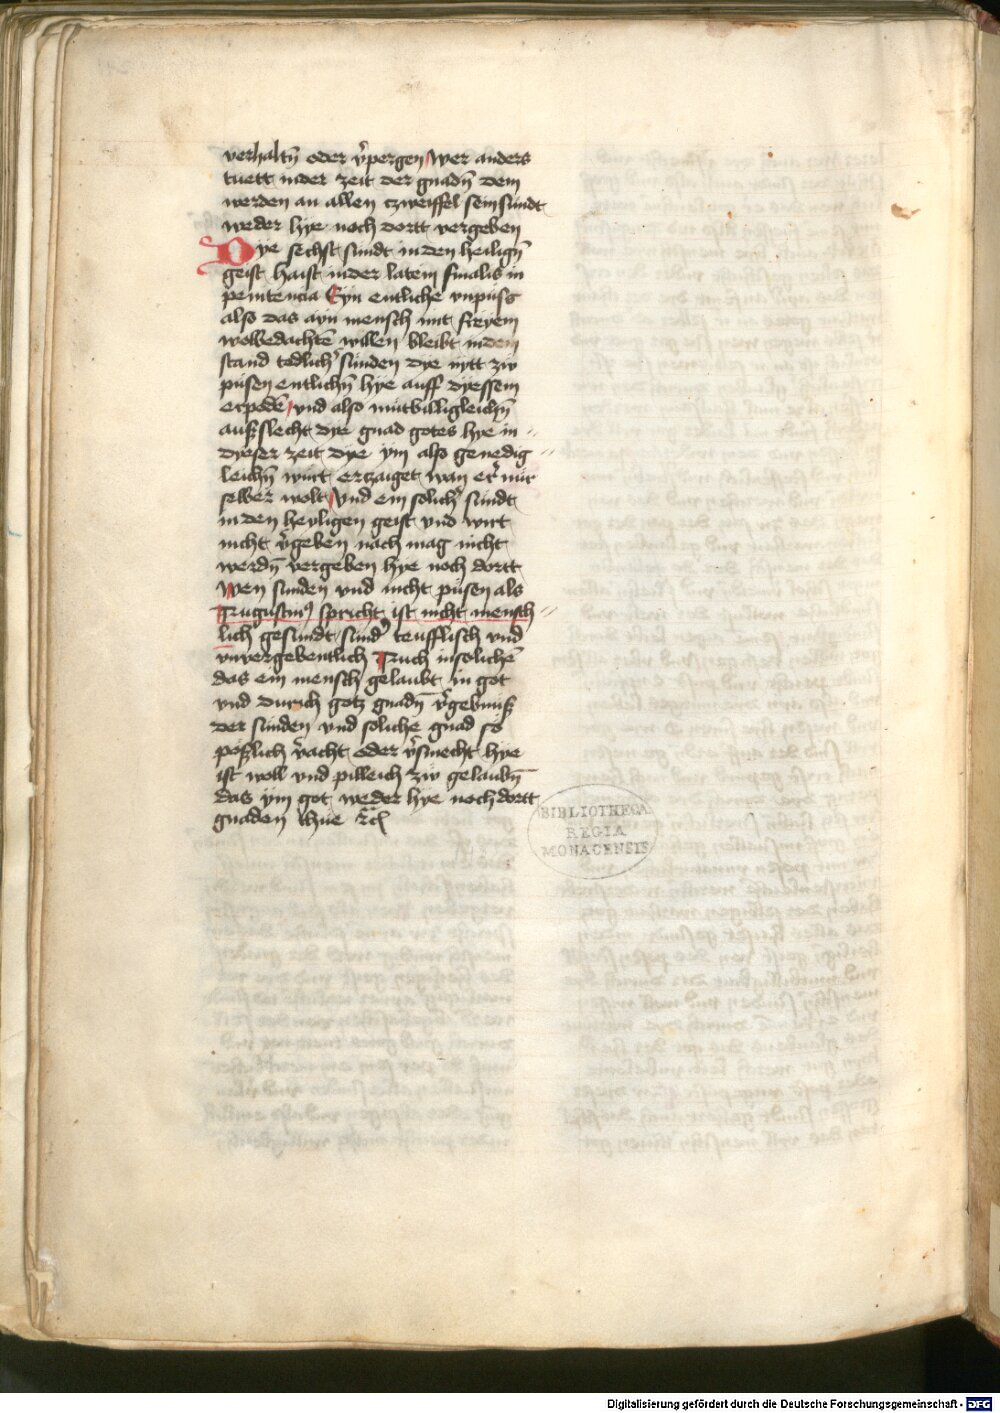 verhaltñ oder v̉pergen Wer anders
tuett inder zeit der gnadñ dem
werden an allen czweiffel sein sündt
weder hye noch dortt vergeben
Dye sechst sündt inden heiligñ
geist haist inder latein finalis in
penitencia Eyn entliche vnpuss
also das ayn mensch mit freyem
wolbedachtē willen bleibt indem
stand todlich̉ sünden dye nytt zw
püsen entlichñ hye auff dyessem
erpodē vnd also mütbilligleichñ
außslecht dye gnad gotes hye in
dyeser zeit dye ym also genedig
leichñ wirt erczaiget wan er̉ nür
selber wolt Vnd ein solich̉ sündt
inden heyligen geist vnd wirt
nicht v̉geben nach mag nicht
werdñ vergeben hye noch dortt
Wen sünden vnd nicht püsen als
Augustinꝰ spricht ist nicht mensch
lich gesündt sünd̉ teufflisch vnd
vnvergebentlich Auch insolichē
das ein mensch gelaubt in got
vnd durich gotz gnadñ v̉gebnüß
der sünden vnd soliche gnad so
pößlich v̉acht oder v̉smecht hye
ist woll vnd pilleich zw gelaubñ
das ym got weder hye noch dortt
gnaden thue ꝛc̄
BIBLIOTHECA
REGIA
MONACENSIS
Digitalisierung gefördert durch die Deutsche Forschungsgemeinschaft - DFG